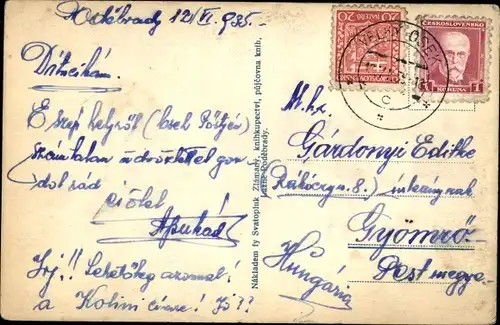 Poděbrady 12/VI. 935.
Drágicám.
E szép helyről (Cseh
számtalan üdvözlettel gon
dol rád
Apukád
Írj!! Lehetőleg azonnal!
a Kolini címre! Jó??
Nákladem fy Svatopluk Zlámaný, knihkupectví, půjčovna knih,
lázně Poděbrady.
ČESKOSLOVENSKO
20
20
ČESKOSLOVENSKO
1 KORUNA 1
Gárdonyi Editke
(Rákóczy u. 8.)
Gyömrő
Pest megye
Hungária